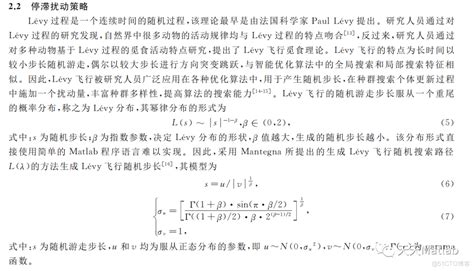 2.2 停滞扰动策略
Lévy过程是一个连续时间的随机过程,该理论最早是由法国科学家 Paul Lévy 提出。研究人员通过对
Lévy过程的研究发现,自然界中很多动物的活动规律均与 Lévy 过程的特点吻合[13],反过来,研究人员通过
对多种动物基于 Lévy 过程的觅食活动特点研究,提出了 Lévy 飞行觅食理论。Lévy 飞行的特点为长时间以
较小步长随机游走,偶尔以较大步长进行方向突变跳跃,与智能优化算法中的全局搜索和局部搜索特征相
似。因此,Lévy飞行被研究人员广泛应用在各种优化算法中,用于产生随机步长,在种群搜索个体更新过程
中施加一个扰动量,丰富种群多样性,提高算法的搜索能力[14-15]。Lévy 飞行的随机游走步长服从一个重尾
的概率分布,称之为 Lévy 分布,其幂律分布的形式为
L(s) ~ |s|^{-1-β}, β∈(0,2), (5)
式中:s 为随机步长;β为指数参数,决定 Lévy 分布的形状,β值越大,生成的随机步长越小。该分布形式直
接使用简单的 Matlab 程序语言难以实现。因此,采用 Mantegna 所提出的生成 Lévy 飞行随机搜索路径
L(λ)的方法生成 Lévy 飞行随机步长[16],其模型为
s = u/|v|^{1/β}, (6)
{σ_u = [Γ(1+β)·sin(π·β/2) / Γ((1+β)/2)·β·2^{(β-1)/2}]^{1/β}, (7)
σ_v = 1.
式中:s 为随机游走步长,u 和 v 均为服从正态分布的参数,即 u~N(0,σ_u²),v~N(0,σ_v²)
函数。
天天Matlab